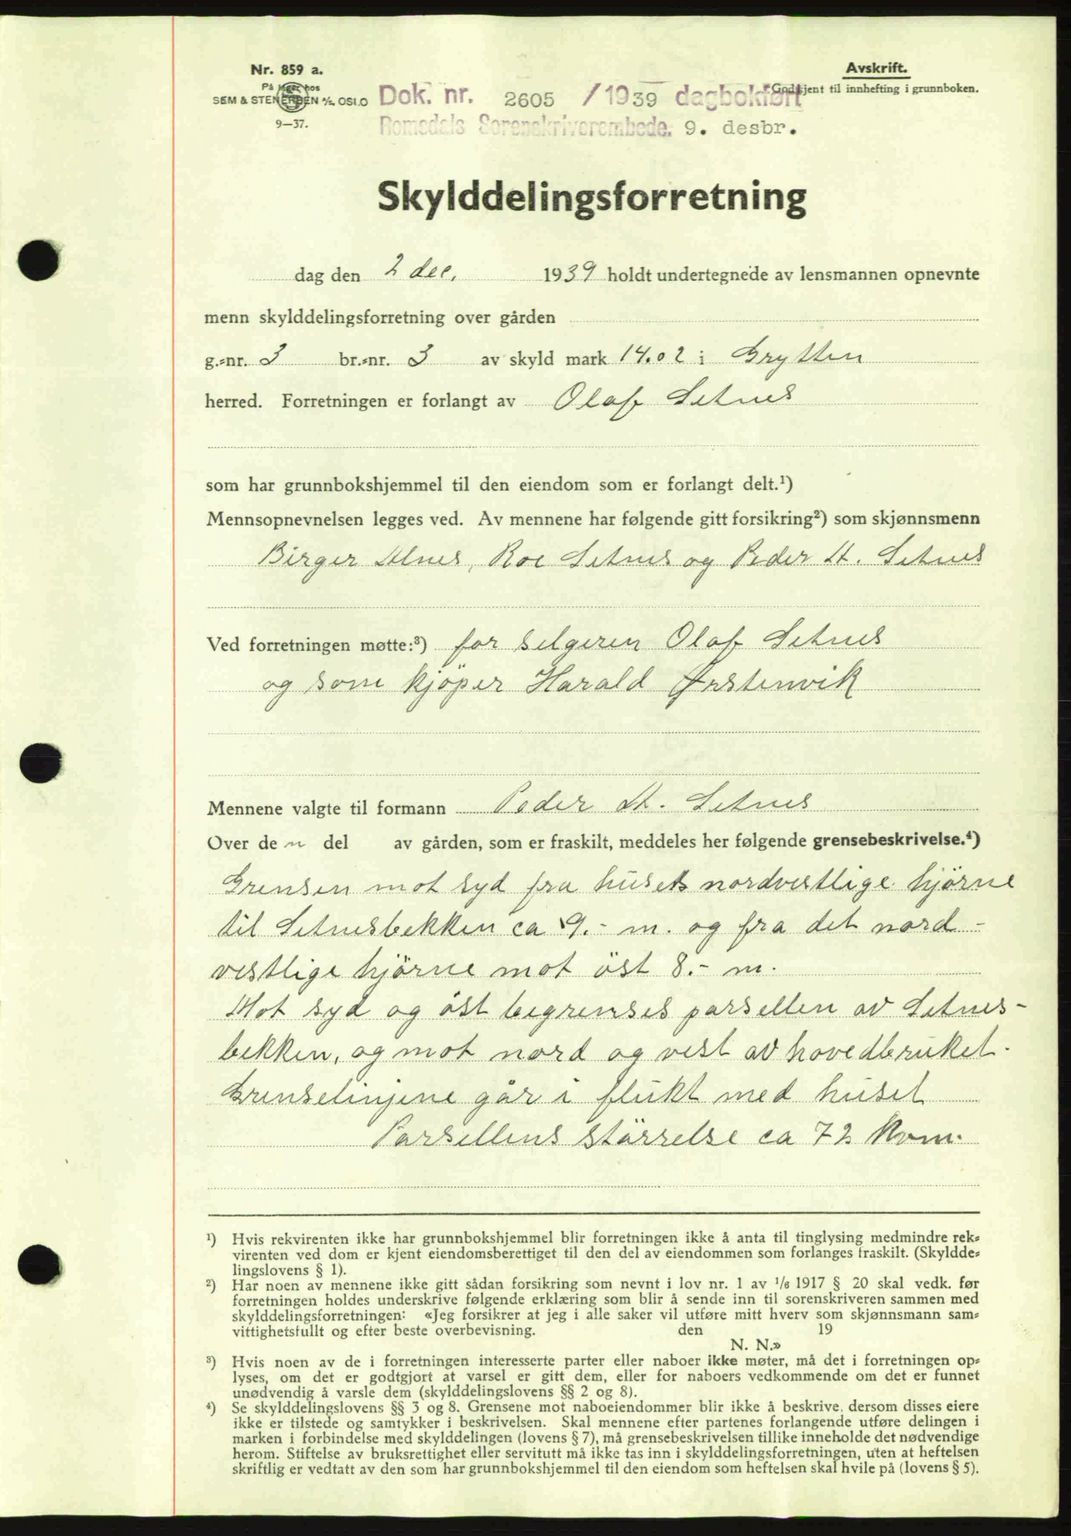 Nr. 859 a.
På lager hos
SEM & STENERSEN A/S, OSLO
9—37.
Avskrift.
Godkjent til innhefting i grunnboken.
Dok. nr. 2605 /1939 dagbokført
Romsdals Sorenskriverembede. 9. desbr.
Skylddelingsforretning
dag den 2 dec. 1939 holdt undertegnede av lensmannen opnevnte
menn skylddelingsforretning over gården
g.-nr. 3 br.-nr. 3 av skyld mark 14.02 i Grytten
herred. Forretningen er forlangt av Olaf Setnes
som har grunnbokshjemmel til den eiendom som er forlangt delt.¹)
Mennsopnevnelsen legges ved. Av mennene har følgende gitt forsikring²) som skjønnsmenn
Birger Alnes, Roe Setnes og Peder A. Setnes
Ved forretningen møtte:³) for selgeren Olaf Setnes
og som kjöper Harald Ørstenvik
Mennene valgte til formann Peder A. Setnes
Over de n del av gården, som er fraskilt, meddeles her følgende grensebeskrivelse.⁴)
Grensen mot syd fra husets nordvestlige hjörne
til Setnesbekken ca 9.- m. og fra det nord-
vestlige hjörne mot öst 8.- m.
Mot syd og öst begrenses parsellen av Setnes-
bekken, og mot nord og vest av hovedbruket.
Grenselinjene går i flukt med huset
Parsellens störrelse ca 72 kvm.
¹) Hvis rekvirenten ikke har grunnbokshjemmel blir forretningen ikke å anta til tinglysing medmindre rek-
virenten ved dom er kjent eiendomsberettiget til den del av eiendommen som forlanges fraskilt. (Skyldde-
lingslovens § 1).
²) Har noen av mennene ikke gitt sådan forsikring som nevnt i lov nr. 1 av 1/6 1917 § 20 skal vedk. før
forretningen holdes underskrive følgende erklæring som blir å sende inn til sorenskriveren sammen med
skylddelingsforretningen: «Jeg forsikrer at jeg i alle saker vil utføre mitt hverv som skjønnsmann sam-
vittighetsfullt og efter beste overbevisning. den 19
N. N.»
³) Hvis noen av de i forretningen interesserte parter eller naboer ikke møter, må det i forretningen op-
lyses, om det er godtgjort at varsel er gitt dem, eller for naboers vedkommende om det er funnet
unødvendig å varsle dem (skylddelingslovens §§ 2 og 8).
⁴) Se skylddelingslovens §§ 3 og 8. Grensene mot naboeiendommer blir ikke å beskrive, dersom disses eiere
ikke er tilstede og samtykker i beskrivelsen. Skal mennene efter partenes forlangende utføre delingen i
marken i forbindelse med skylddelingen (lovens § 7), må grensebeskrivelsen tillike inneholde det nødvendige
herom. Stiftelse av bruksrettighet eller servitutt må ikke tas inn i skylddelingsforretningen, uten at heftelsen
skriftlig er vedtatt av den som har grunnbokshjemmel til den eiendom som heftelsen skal hvile på (lovens § 5).